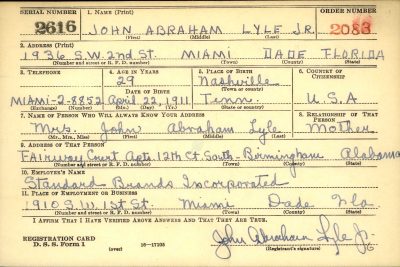 SERIAL NUMBER 1. NAME (Print) ORDER NUMBER
2616 JOHN ABRAHAM LYLE JR. 2083
(First) (Middle) (Last)
2. ADDRESS (Print)
1936 S.W. 2nd St. MIAMI DADE FLORIDA
(Number and street or R. F. D. number) (Town) (County) (State)
3. TELEPHONE 4. AGE IN YEARS 5. PLACE OF BIRTH 6. COUNTRY OF CITIZENSHIP
29 Nashville
(Town or county)
MIAMI-2-8852 April 22, 1911 Tenn. U.S.A
(Exchange) (Number) (Mo.) (Day) (Yr.) (State or country)
7. NAME OF PERSON WHO WILL ALWAYS KNOW YOUR ADDRESS 8. RELATIONSHIP OF THAT PERSON
Mrs. John Abraham Lyle Mother
(Mr., Mrs., Miss) (First) (Middle) (Last)
9. ADDRESS OF THAT PERSON
Fairway Court Apts. 12th Ct. South - Birmingham Alabama
(Number and street or R. F. D. number) (Town) (County) (State)
10. EMPLOYER'S NAME
Standard Brands Incorporated
11. PLACE OF EMPLOYMENT OR BUSINESS
1910 S.W. 1st St. Miami Dade Fla
(Number and street or R. F. D. number) (Town) (County) (State)
I AFFIRM THAT I HAVE VERIFIED ABOVE ANSWERS AND THAT THEY ARE TRUE.
REGISTRATION CARD
D. S. S. Form 1 (over) 16—17105 John Abraham Lyle Jr.
(Registrant's signature)